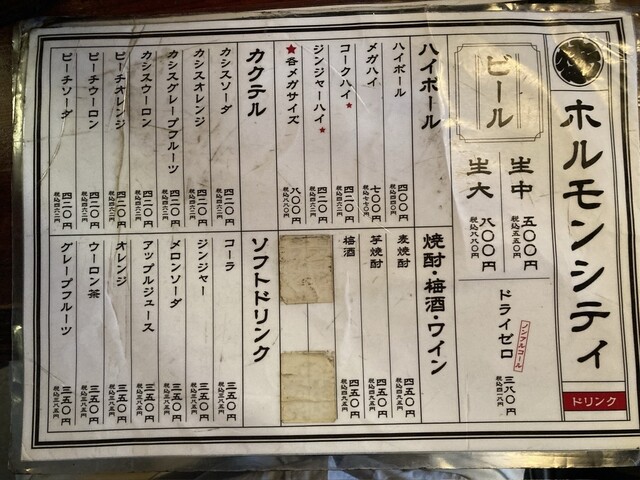 ホルモンシティ
ドリンク
ビール
生中 五〇〇円 税込五五〇円
生大 八〇〇円 税込八八〇円
ノンアルコール
ドライゼロ 三八〇円 税込四一八円
ハイボール
ハイボール 四〇〇円 税込四四〇円
メガハイ 七〇〇円 税込七七〇円
コークハイ★ 四二〇円 税込四六二円
ジンジャーハイ★ 四二〇円 税込四六二円
★各メガサイズ 八〇〇円 税込八八〇円
焼酎・梅酒・ワイン
麦焼酎 四五〇円 税込四九五円
芋焼酎 四五〇円 税込四九五円
梅酒 四五〇円 税込四九五円
カクテル
カシスソーダ 四二〇円 税込四六二円
カシスオレンジ 四二〇円 税込四六二円
カシスグレープフルーツ 四二〇円 税込四六二円
カシスウーロン 四二〇円 税込四六二円
ピーチオレンジ 四二〇円 税込四六二円
ピーチウーロン 四二〇円 税込四六二円
ピーチソーダ 四二〇円 税込四六二円
ソフトドリンク
コーラ 三五〇円 税込三八五円
ジンジャー 三五〇円 税込三八五円
メロンソーダ 三五〇円 税込三八五円
アップルジュース 三五〇円 税込三八五円
オレンジ 三五〇円 税込三八五円
ウーロン茶 三五〇円 税込三八五円
グレープフルーツ 三五〇円 税込三八五円